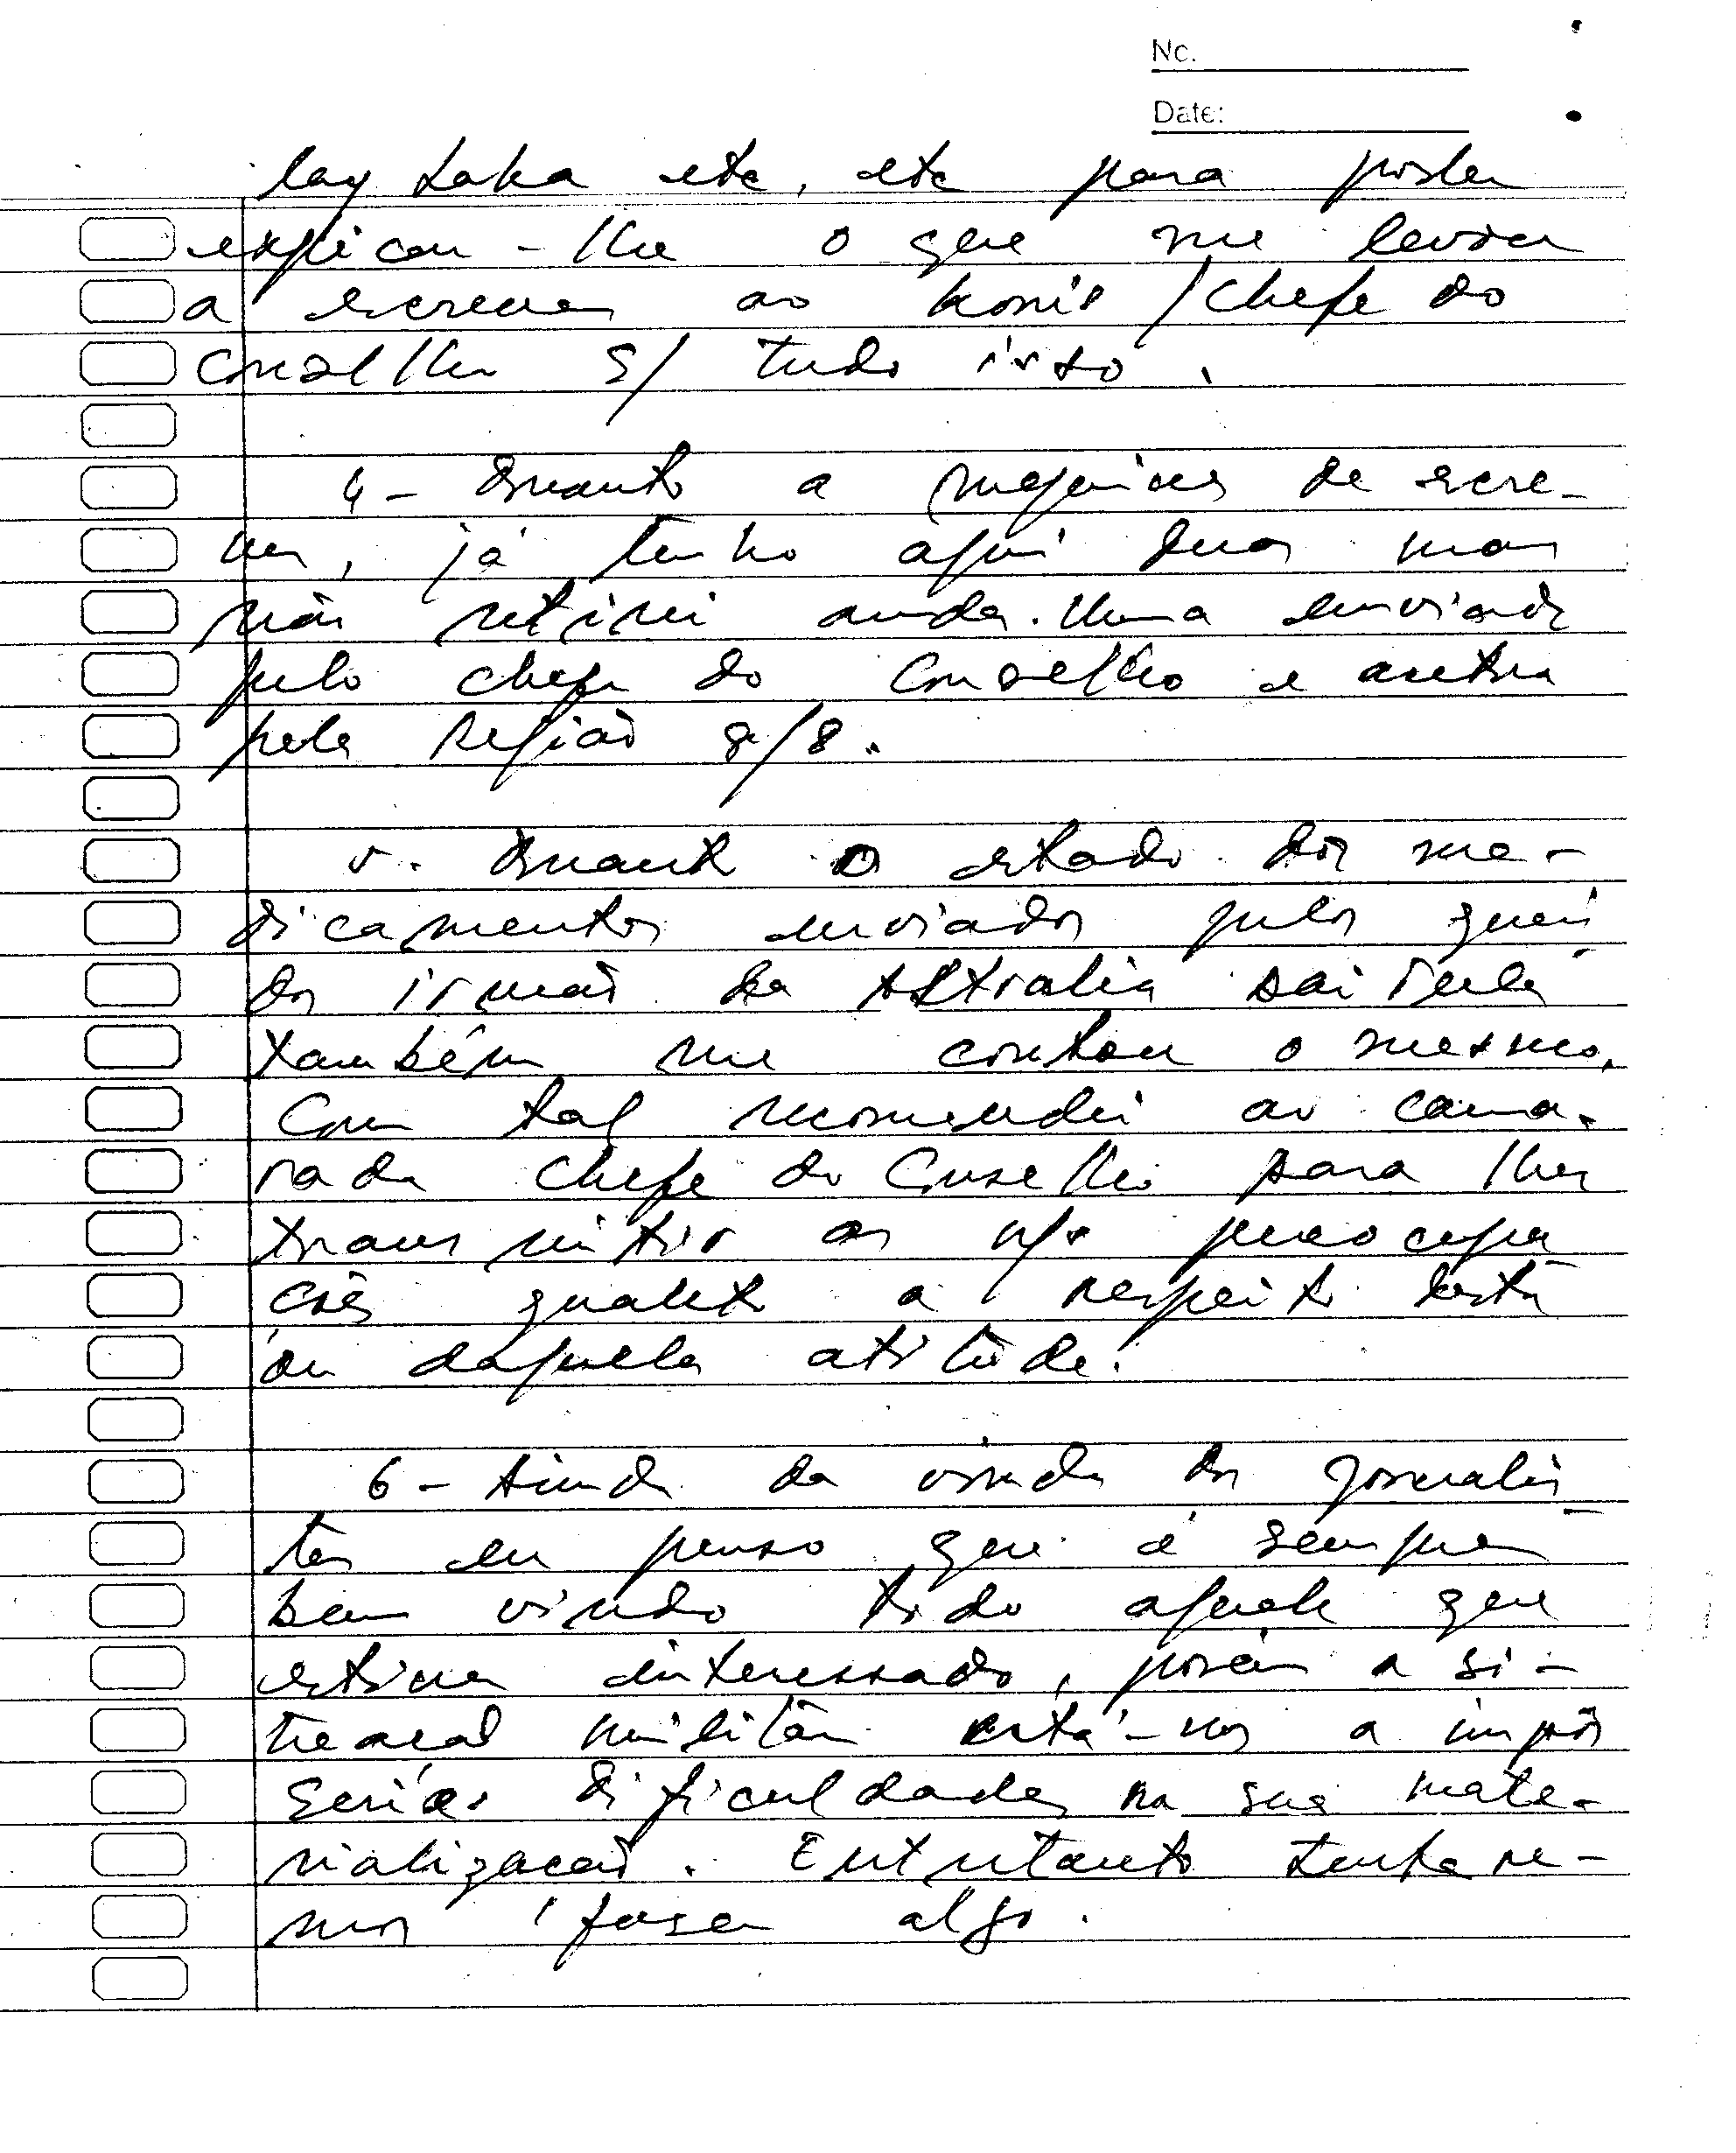 No.
Date:
lay taka etc, etc para poder
explicar-lhe o que me levou
a escrever ao Konis / Chefe do
Conselho s/ tudo isto.
4 - Quanto a maquinas de escre-
ver, já tenho aqui duas mas
não retirei ainda. Uma enviada
pelo chefe do Conselho e outra
pela Região
5. Quanto o estado dos me-
dicamentos enviados pelos queri-
dos irmãos da
também me contou o mesmo.
Com tal recomendei ao cama-
rada Chefe do Conselho para lhes
transmitir as n/s preocupa
ções a respeito desta
ou daquela atitude.
6 - Ainda da vinda dos jornalis-
tas eu penso que é sempre
bem vindo todo aquele que
estiver interessado, porém a si-
tuação militar está-nos a impôr
serias dificuldades na sua mate-
rialização. Entretanto tentare-
mos fazer algo.